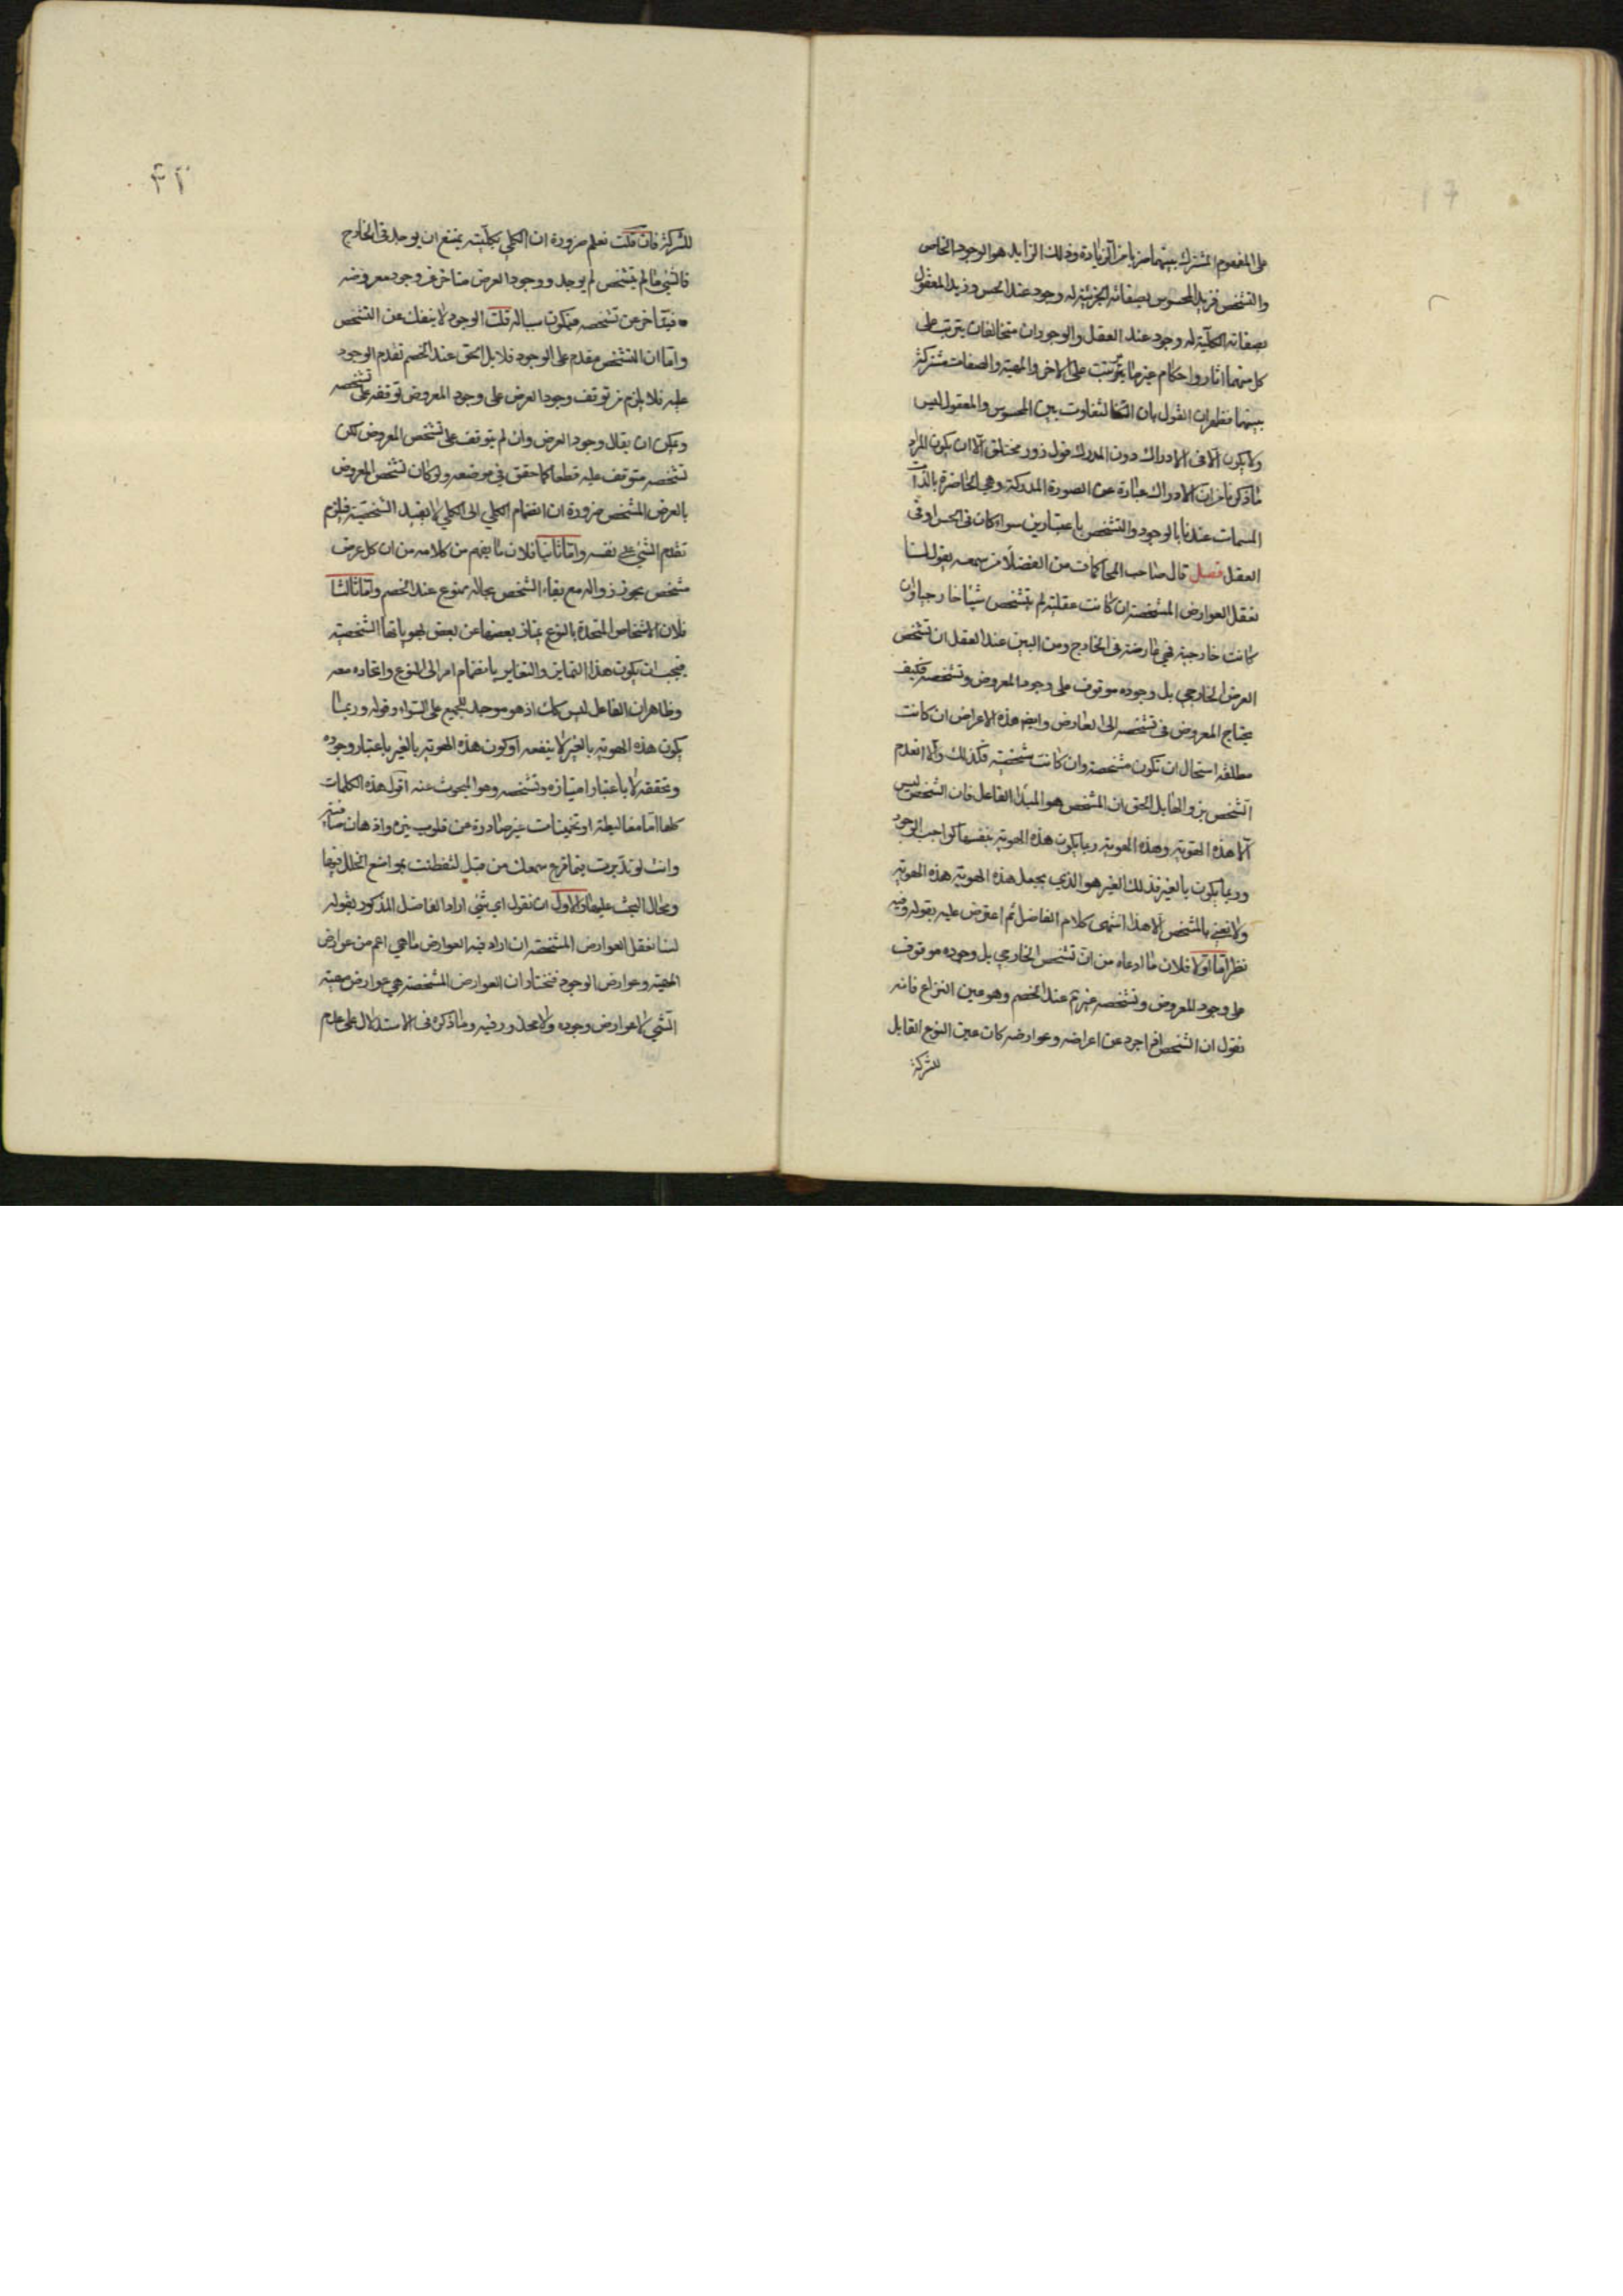 على المفهوم المشترك بينهما ضربا من الزيادة وذلك الزايد هو الوجود الخاص
والتشخص فزيد المحسوس بصفاته الجزئية له وجود عند الحس وزيد المعقول
بصفاته الكلية له وجود عند العقل والوجودان متخالفان يترتب على
كل منهما اثار واحكام غير ما يترتب على الاخر والمهية والصفات مشتركة
بينهما فظهر ان القول بان التفاوت بين المحسوس والمعقول ليس
ولا يكون الا فى الادراك دون المدرك قول زور مختلق الا ان يكون المراد
ما ذكرنا من ان الادراك عبارة عن الصورة المدركة وهي الحاضرة بالذات
المسمات عندنا بالوجود والتشخص باعتبارين سواء كان فى الحس او فى
العقل فصل قال صاحب المحاكمات من الفضلا من سمعه يقول لسنا
نعقل العوارض المشخصة ان كانت عقلية لم يتشخص شيئا خارجيا وان
كانت خارجية فهي عارضة فى الخارج ومن البين عند العقل ان تشخص
العرض الخارجي بل وجوده موقوف على وجود المعروض وتشخصه فكيف
يحتاج المعروض فى تشخصه الى العارض وايضا هذه الاعراض ان كانت
مطلقة استحال ان تكون مشخصة وان كانت شخصية فكذلك والا انعدم
الشخص بزوالها بل الحق ان المشخص هو المبدا الفاعل فان الشخص ليس
الا هذه الهوية وهذه الهوية ربما يكون هذه الهوية بنفسها كواجب الوجود
وربما يكون بالغير فذلك الغير هو الذي يجعل هذه الهوية هذه الهوية
ولا نعني بالمشخص الا هذا انتهى كلام الفاضل ثم اعترض عليه بقوله وفيه
نظر اما اولا فلان ما ادعاه من ان تشخص الخارجي بل وجوده موقوف
على وجود المعروض وتشخصه غير تم عند الخصم وهو عين النزاع فانه
نقول ان الشخص اذا جرد عن اعراضه وعوارضه كان عين النوع القابل
للشركة
٤٢
للشركة فان قلت نعلم ضرورة ان الكلي بكليته يمتنع ان يوجد فى الخارج
فالشئ ما لم يتشخص لم يوجد ووجود العرض متاخر عن وجود معروضه
فيتاخر عن تشخصه فيكون سياله قلت الوجود لا ينفك عن التشخص
واما ان التشخص مقدم على الوجود فلا بل الحق عند الخصم تقدم الوجود
عليه فلا يلزم من توقف وجود العرض على وجود المعروض توقفه على تشخصه
ويمكن ان يقال وجود العرض وان لم يتوقف على تشخص المعروض لكن
تشخصه متوقف عليه قطعا كما حقق في موضعه ولو كان تشخص المعروض
بالعرض المشخص ضرورة ان انضمام الكلي الى الكلي لا يفيد الشخصية فيلزم
تقدم الشئ على نفسه واما ثانيا فلان ما يفهم من كلامه من ان كل عرض
مشخص يجوز زواله مع بقاء الشخص بحاله ممنوع عند الخصم واما ثالثا
فلان الاشخاص المتحدة بالنوع يمتاز بعضها عن بعض بهوياتها الشخصية
فيجب ان يكون هذا التمايز والتغاير بانضمام امر الى النوع واتحاده معه
وظاهر ان الفاعل ليس كذلك اذ هو موجد للجميع على السواء وقوله وربما
يكون هذه الهوية بالغير لا ينفعه اذ كون هذه الهوية بالغير باعتبار وجوده
وتحققه لا باعتبار امتيازه وتشخصه وهو المبحوث عنه اقول هذه الكلمات
كلها اما مغاليط او تخمينات غير صادرة عن قلوب نيرة واذهان مستنير
وانت لو تدبرت فيما قرع سمعك من قبل لتفطنت بمواضع الخلل فيها
ومحال البحث عليها والاول ان نقول اي شئ اراد الفاضل المذكور بقوله
لسنا نعقل العوارض المشخصة ان اراد فيه العوارض ما هي اعم من عوارض
المهية وعوارض الوجود فنختار ان العوارض المشخصة هي عوارض مهية
الشئ لا عوارض وجوده ولا محذور فيه وما ذكره فى الاستدلال على عدم